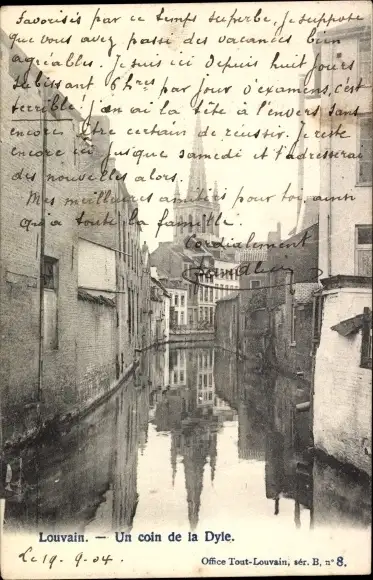 Favorisés par ce temps superbe, je suppose
que vous avez passé des vacances bien
agréables. Je suis ici depuis huit jours
subissant 6 hres par jour d'examens, c'est
terrible! j'en ai la tête à l'envers sans
encore être certain de réussir. Je reste
encore ici jusque samedi et t'adresserai
des nouvelles alors.
Mes meilleures amitiés pour toi, ainsi
qu'à toute la famille.
Cordialement
Louvain. — Un coin de la Dyle.
Le 19. 9-04.
Office Tout-Louvain, sér. B, n° 8.